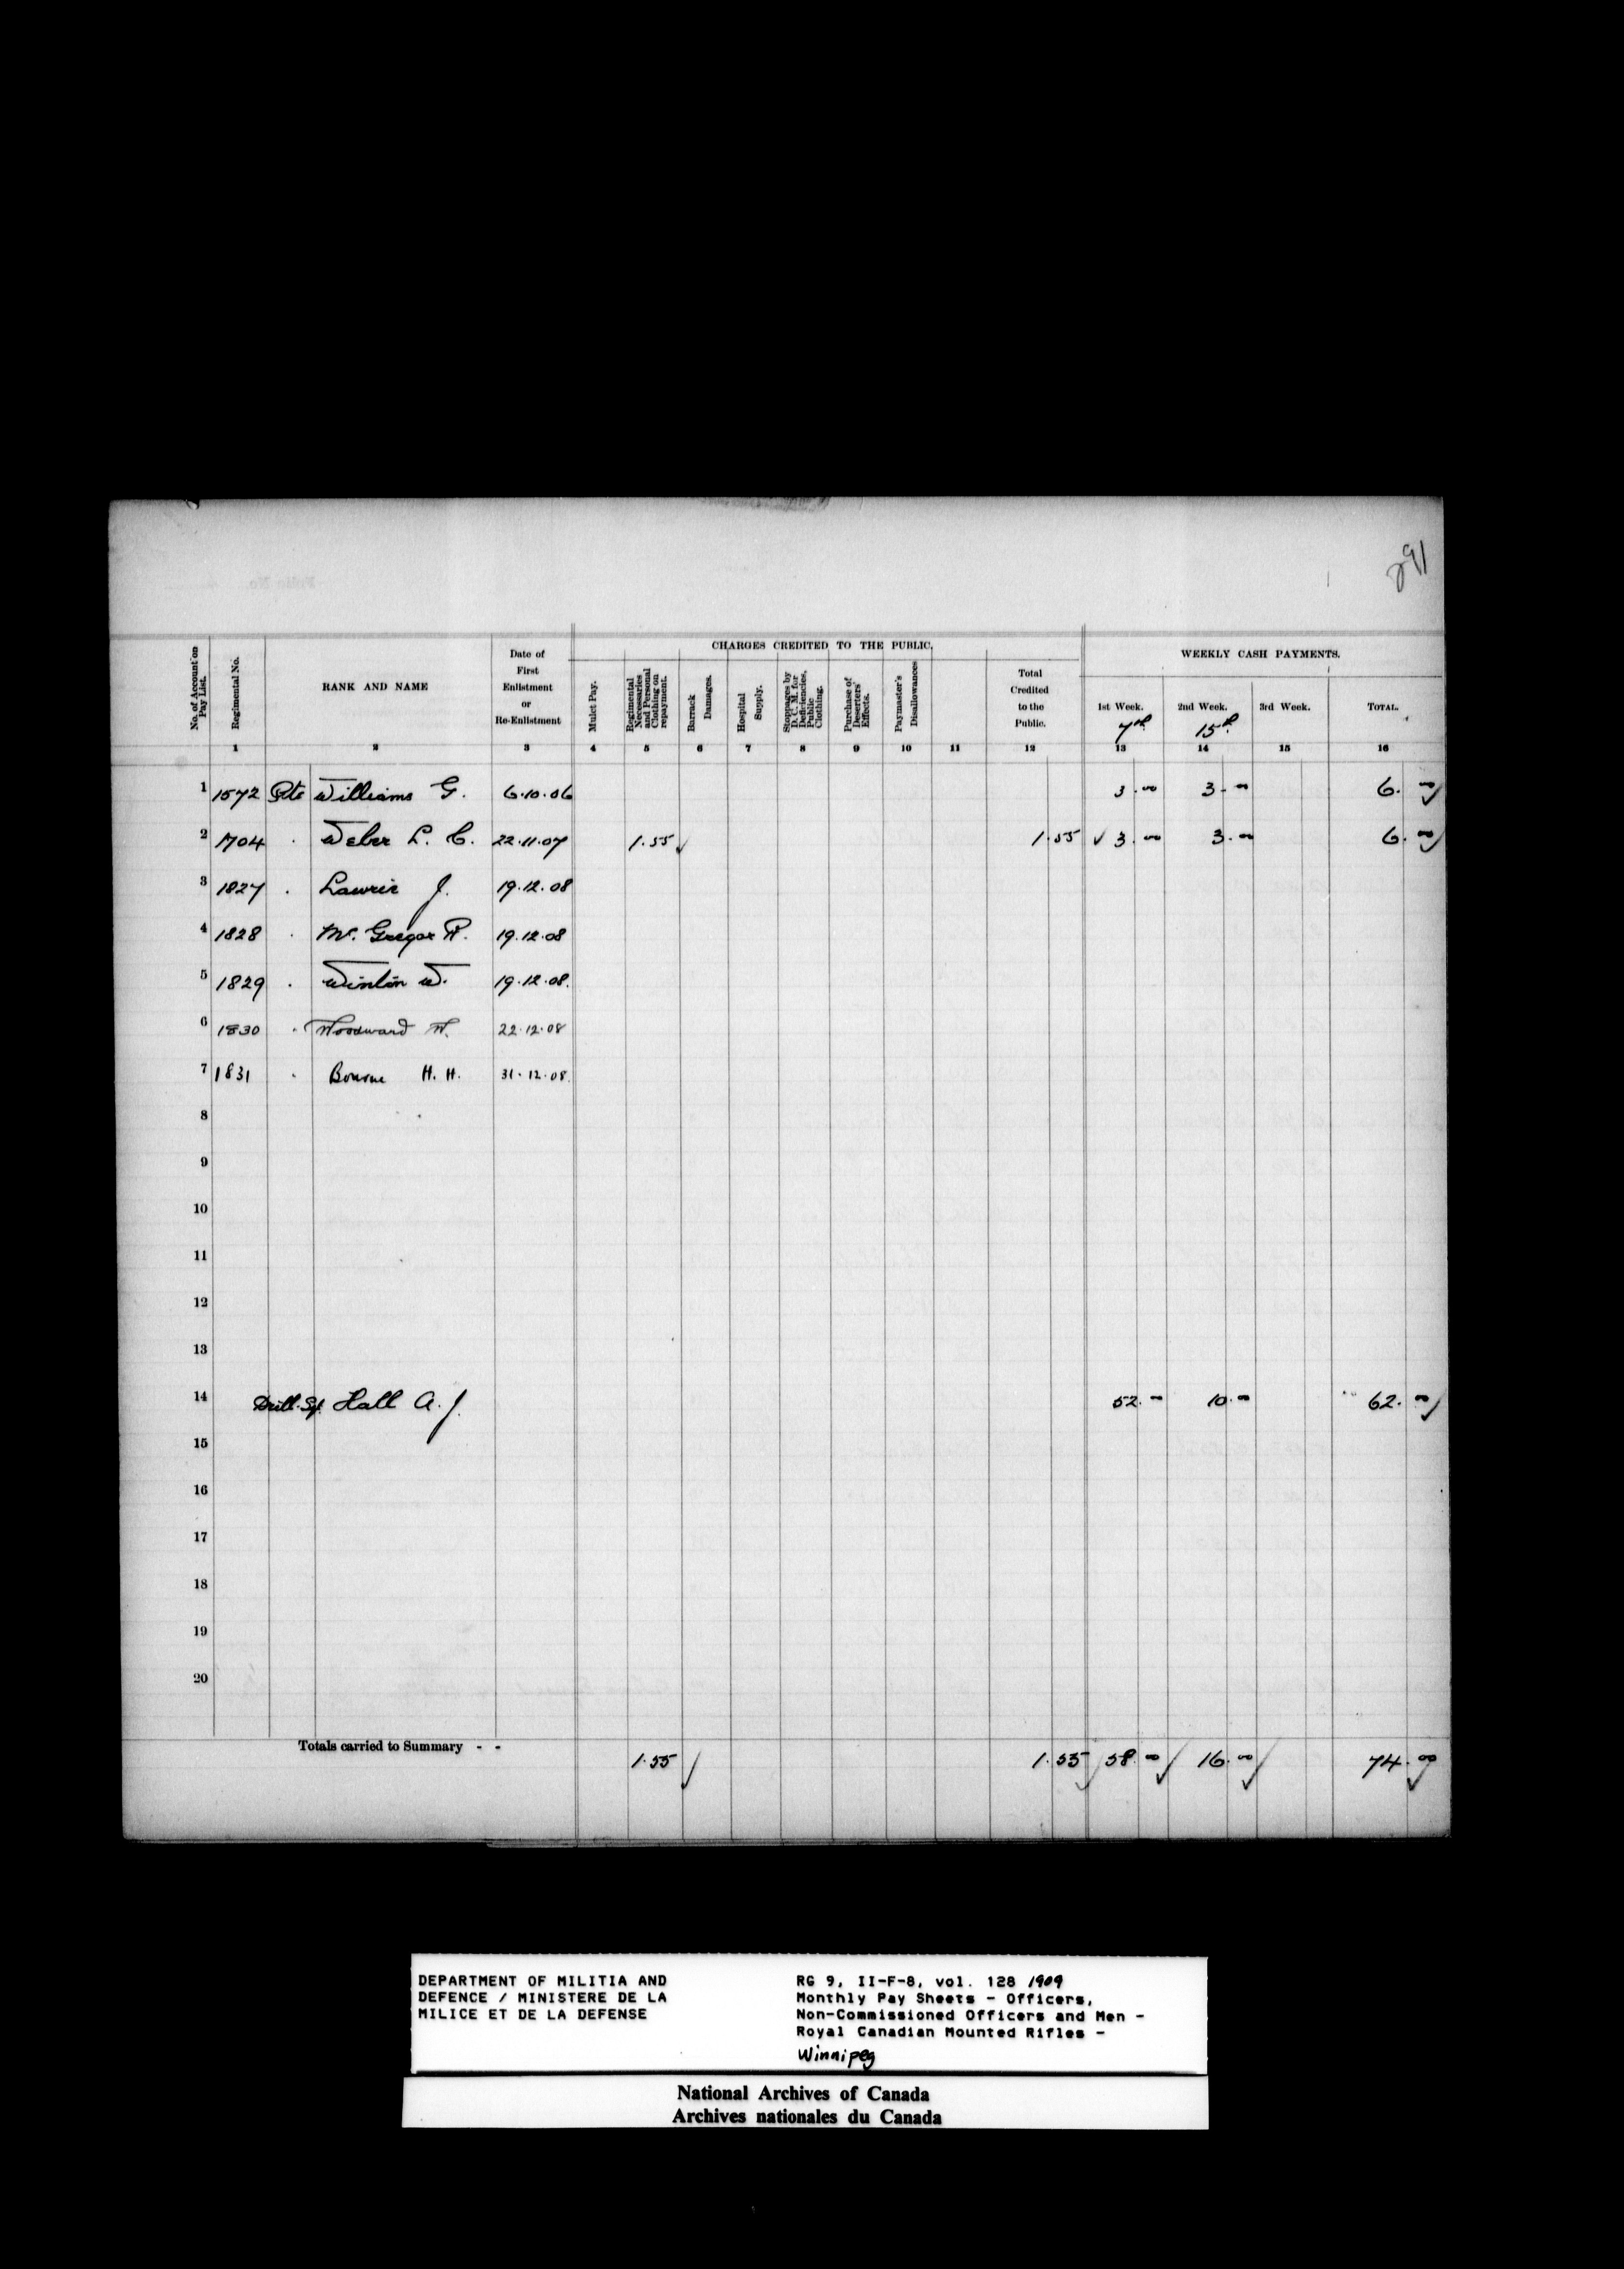 291
CHARGES CREDITED TO THE PUBLIC.
WEEKLY CASH PAYMENTS.
No. of Account on Pay List.
Regimental No.
RANK AND NAME
Date of First Enlistment or Re-Enlistment
Mulct Pay.
Regimental Necessaries and Personal Clothing on repayment.
Barrack Damages.
Hospital Supply.
Stoppages by D. C. M. for Deficiencies, Public Clothing.
Purchase of Deserters' Effects.
Paymaster's Disallowances
Total Credited to the Public.
1st Week. 7th
2nd Week. 15th
3rd Week.
TOTAL.
1 2 3 4 5 6 7 8 9 10 11 12 13 14 15 16
1 1572 Pte Williams G. 6.10.06 3.00 3.00 6.00
2 1704 . Weber L. C. 22.11.07 1.55 1.55 3.00 3.00 6.00
3 1827 . Lawrie J. 19.12.08
4 1828 . Mc. Gregor R. 19.12.08
5 1829 . Winton W. 19.12.08.
6 1830 . Woodward W. 22.12.08
7 1831 . Bourne H. H. 31.12.08.
8
9
10
11
12
13
14 Drill. Sgt. Hall A. J. 52.00 10.00 62.00
15
16
17
18
19
20
Totals carried to Summary - - 1.55 1.55 58.00 16.00 74.00
DEPARTMENT OF MILITIA AND
DEFENCE / MINISTERE DE LA
MILICE ET DE LA DEFENSE
RG 9, II-F-8, vol. 128 1909
Monthly Pay Sheets - Officers,
Non-Commissioned Officers and Men -
Royal Canadian Mounted Rifles -
Winnipeg
National Archives of Canada
Archives nationales du Canada